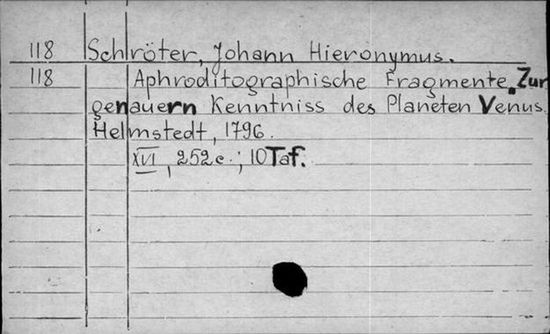 118 Schröter, Johann Hieronymus.
118 Aphroditographische Fragmente. Zur
genauern Kenntniss des Planeten Venus.
Helmstedt, 1796.
XVI, 252 c.; 10 Taf.